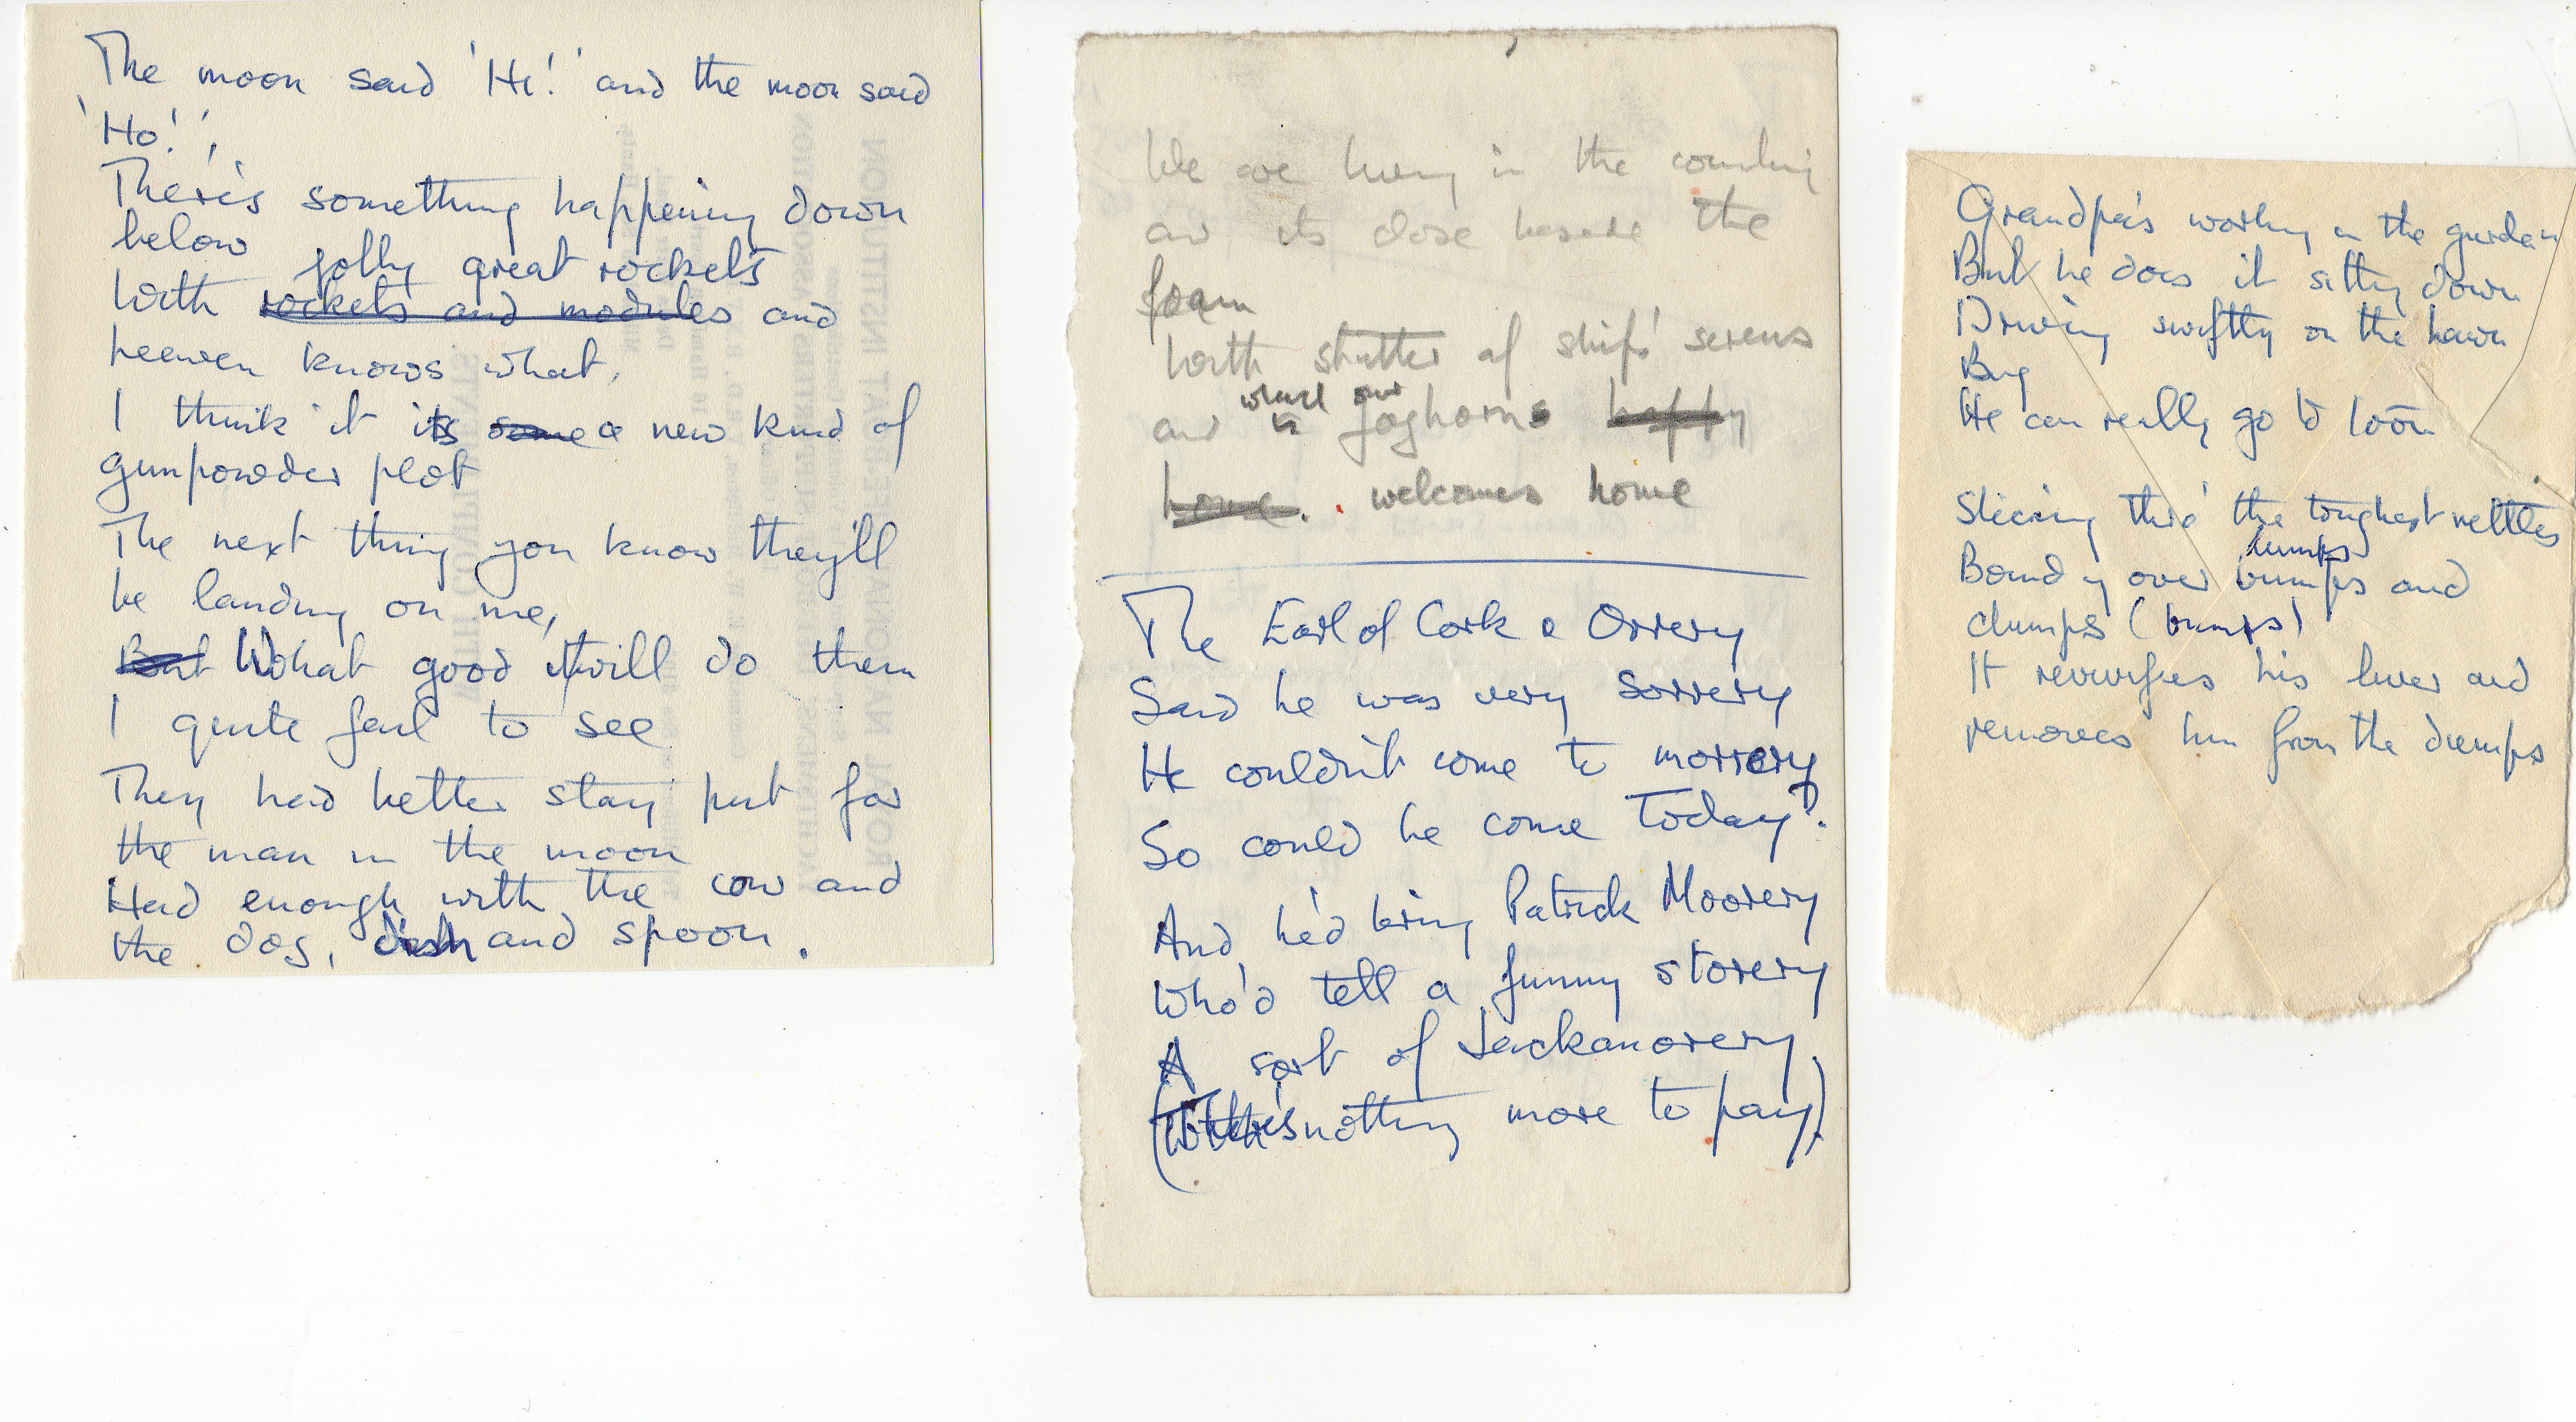 The moon said 'Hi!' and the moon said
'Ho!',
There's something happening down
below
jolly great rockets
With rockets and modules and
heaven knows what,
I think it its some a new kind of
gunpowder plot
The next thing you know they'll
be landing on me,
But What good it will do them
I quite fail to see
They had better stay put for
the man in the moon
Had enough with the cow and
the dog, dish and spoon.
We are living in the country
and its close beside the
foam
With of ships' sirens
and foghorns happy
home. welcomes home
The Earl of Cork & Orrery
Said he was very Sorrery
He couldn't come to morrery
So could he come Today?
And he'd bring Patrick Moorery
Who'd tell a funny storery
A sort of Jackanorery
(nothing more to pay)
Grandpa's working in the garden
But he does it sitting down
Driving swiftly on the lawn
Bug
He can really go to town
Slicing thro' the toughest nettles
lumps
Bounding over bumps and
clumps (bumps)
It revivifies his liver and
removes him from the dumps